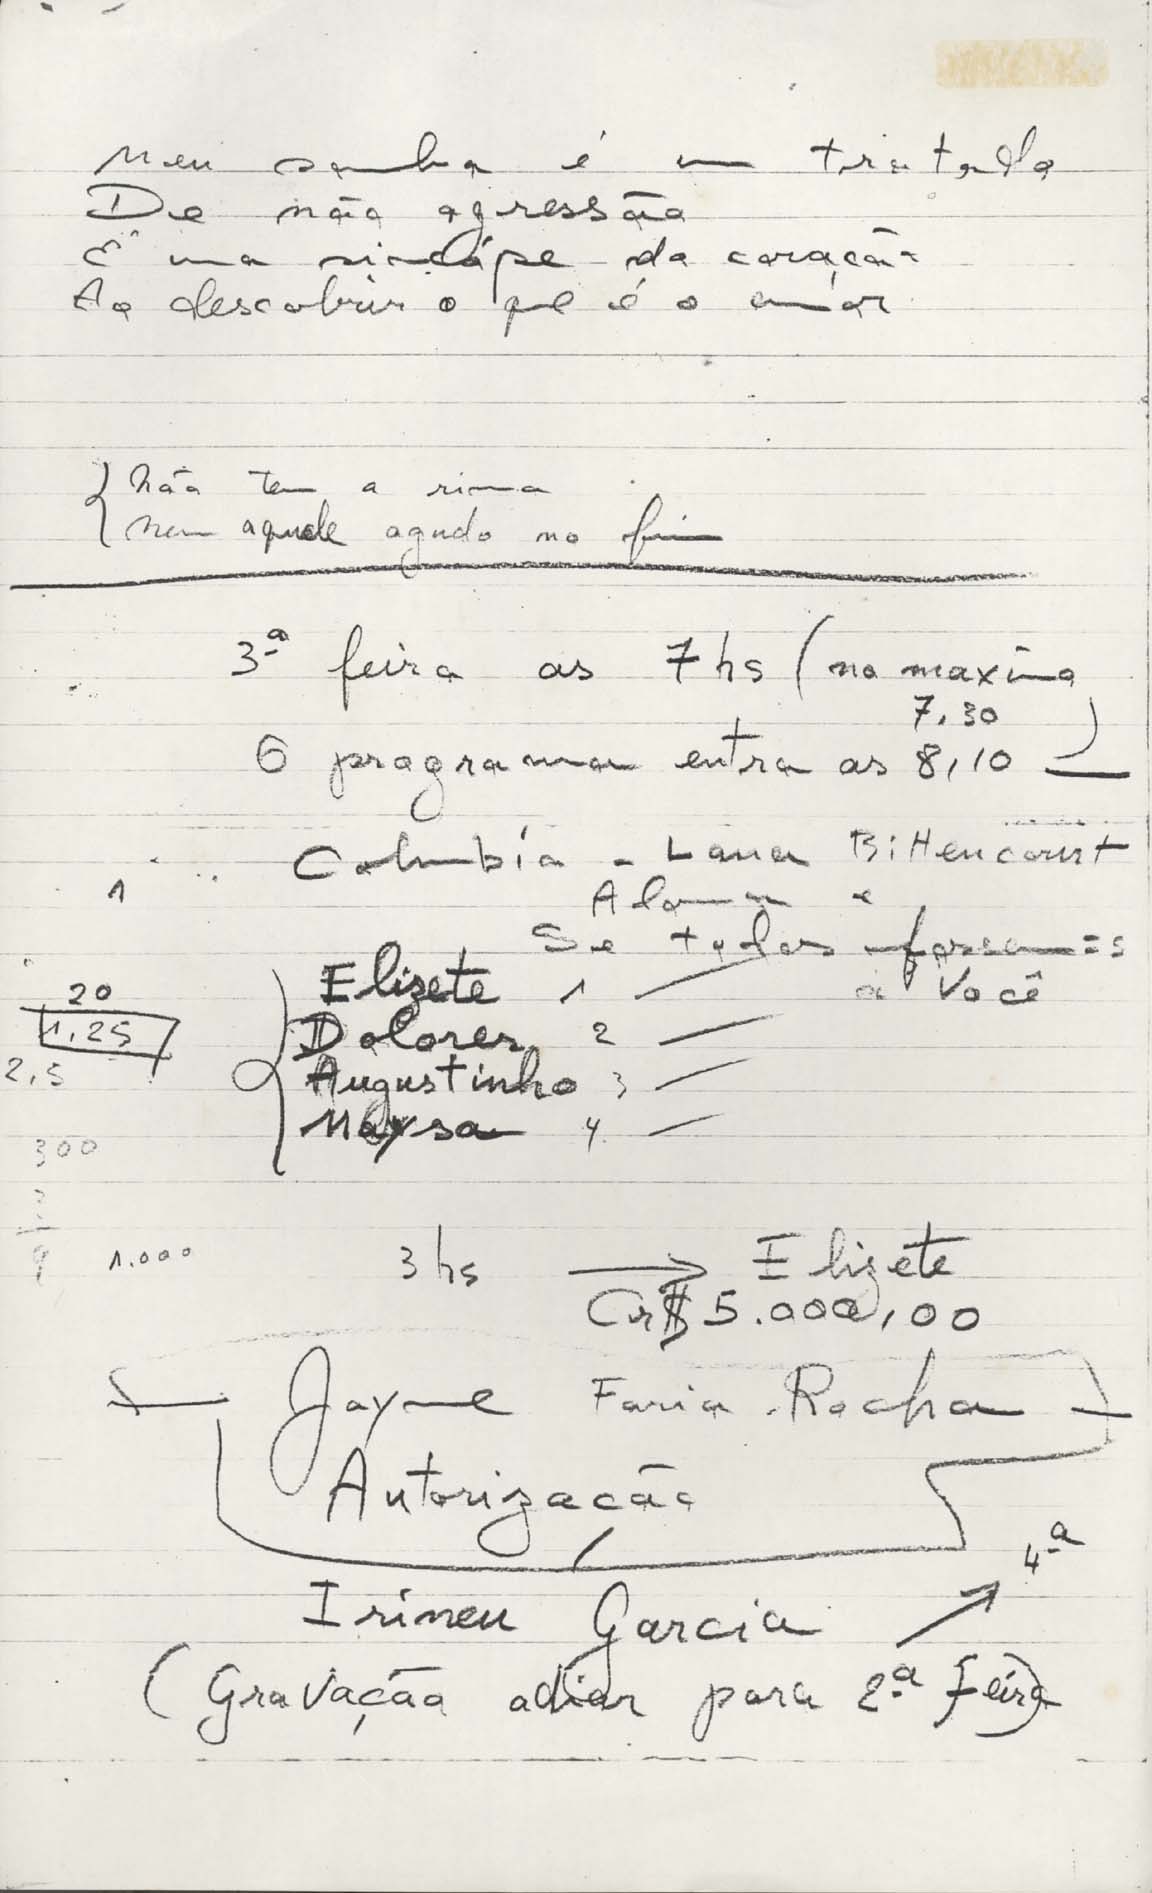 Meu samba é um tratado
De não agressão
É uma síncope do coração
Ao descobrir o que é o amor
não tem a rima
nem aquele agudo no fim
3ª feira as 7 hs (no maximo
7,30
O programa entra as 8,10 )
Columbia - Lana Bittencourt
1
Se todos fossem = s
a Você
Elizete 1
Dolores 2
Augustinho 3
Maysa 4
20
1,25
2,5
300
3
9
1.000
3 hs → Elizete
Cr$ 5.000,00
Jayme Faria Rocha
Autorização
4ª
Irineu Garcia
(Gravação adiar para 2ª Feira)